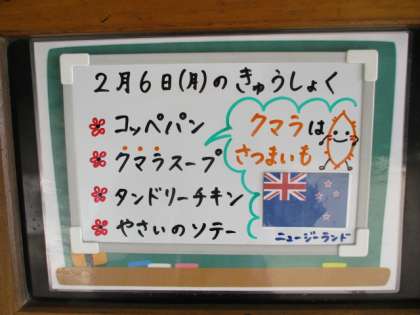 2月6日(月)のきゅうしょく
コッペパン
クマラスープ
タンドリーチキン
やさいのソテー
クマラは
さつまいも
ニュージーランド